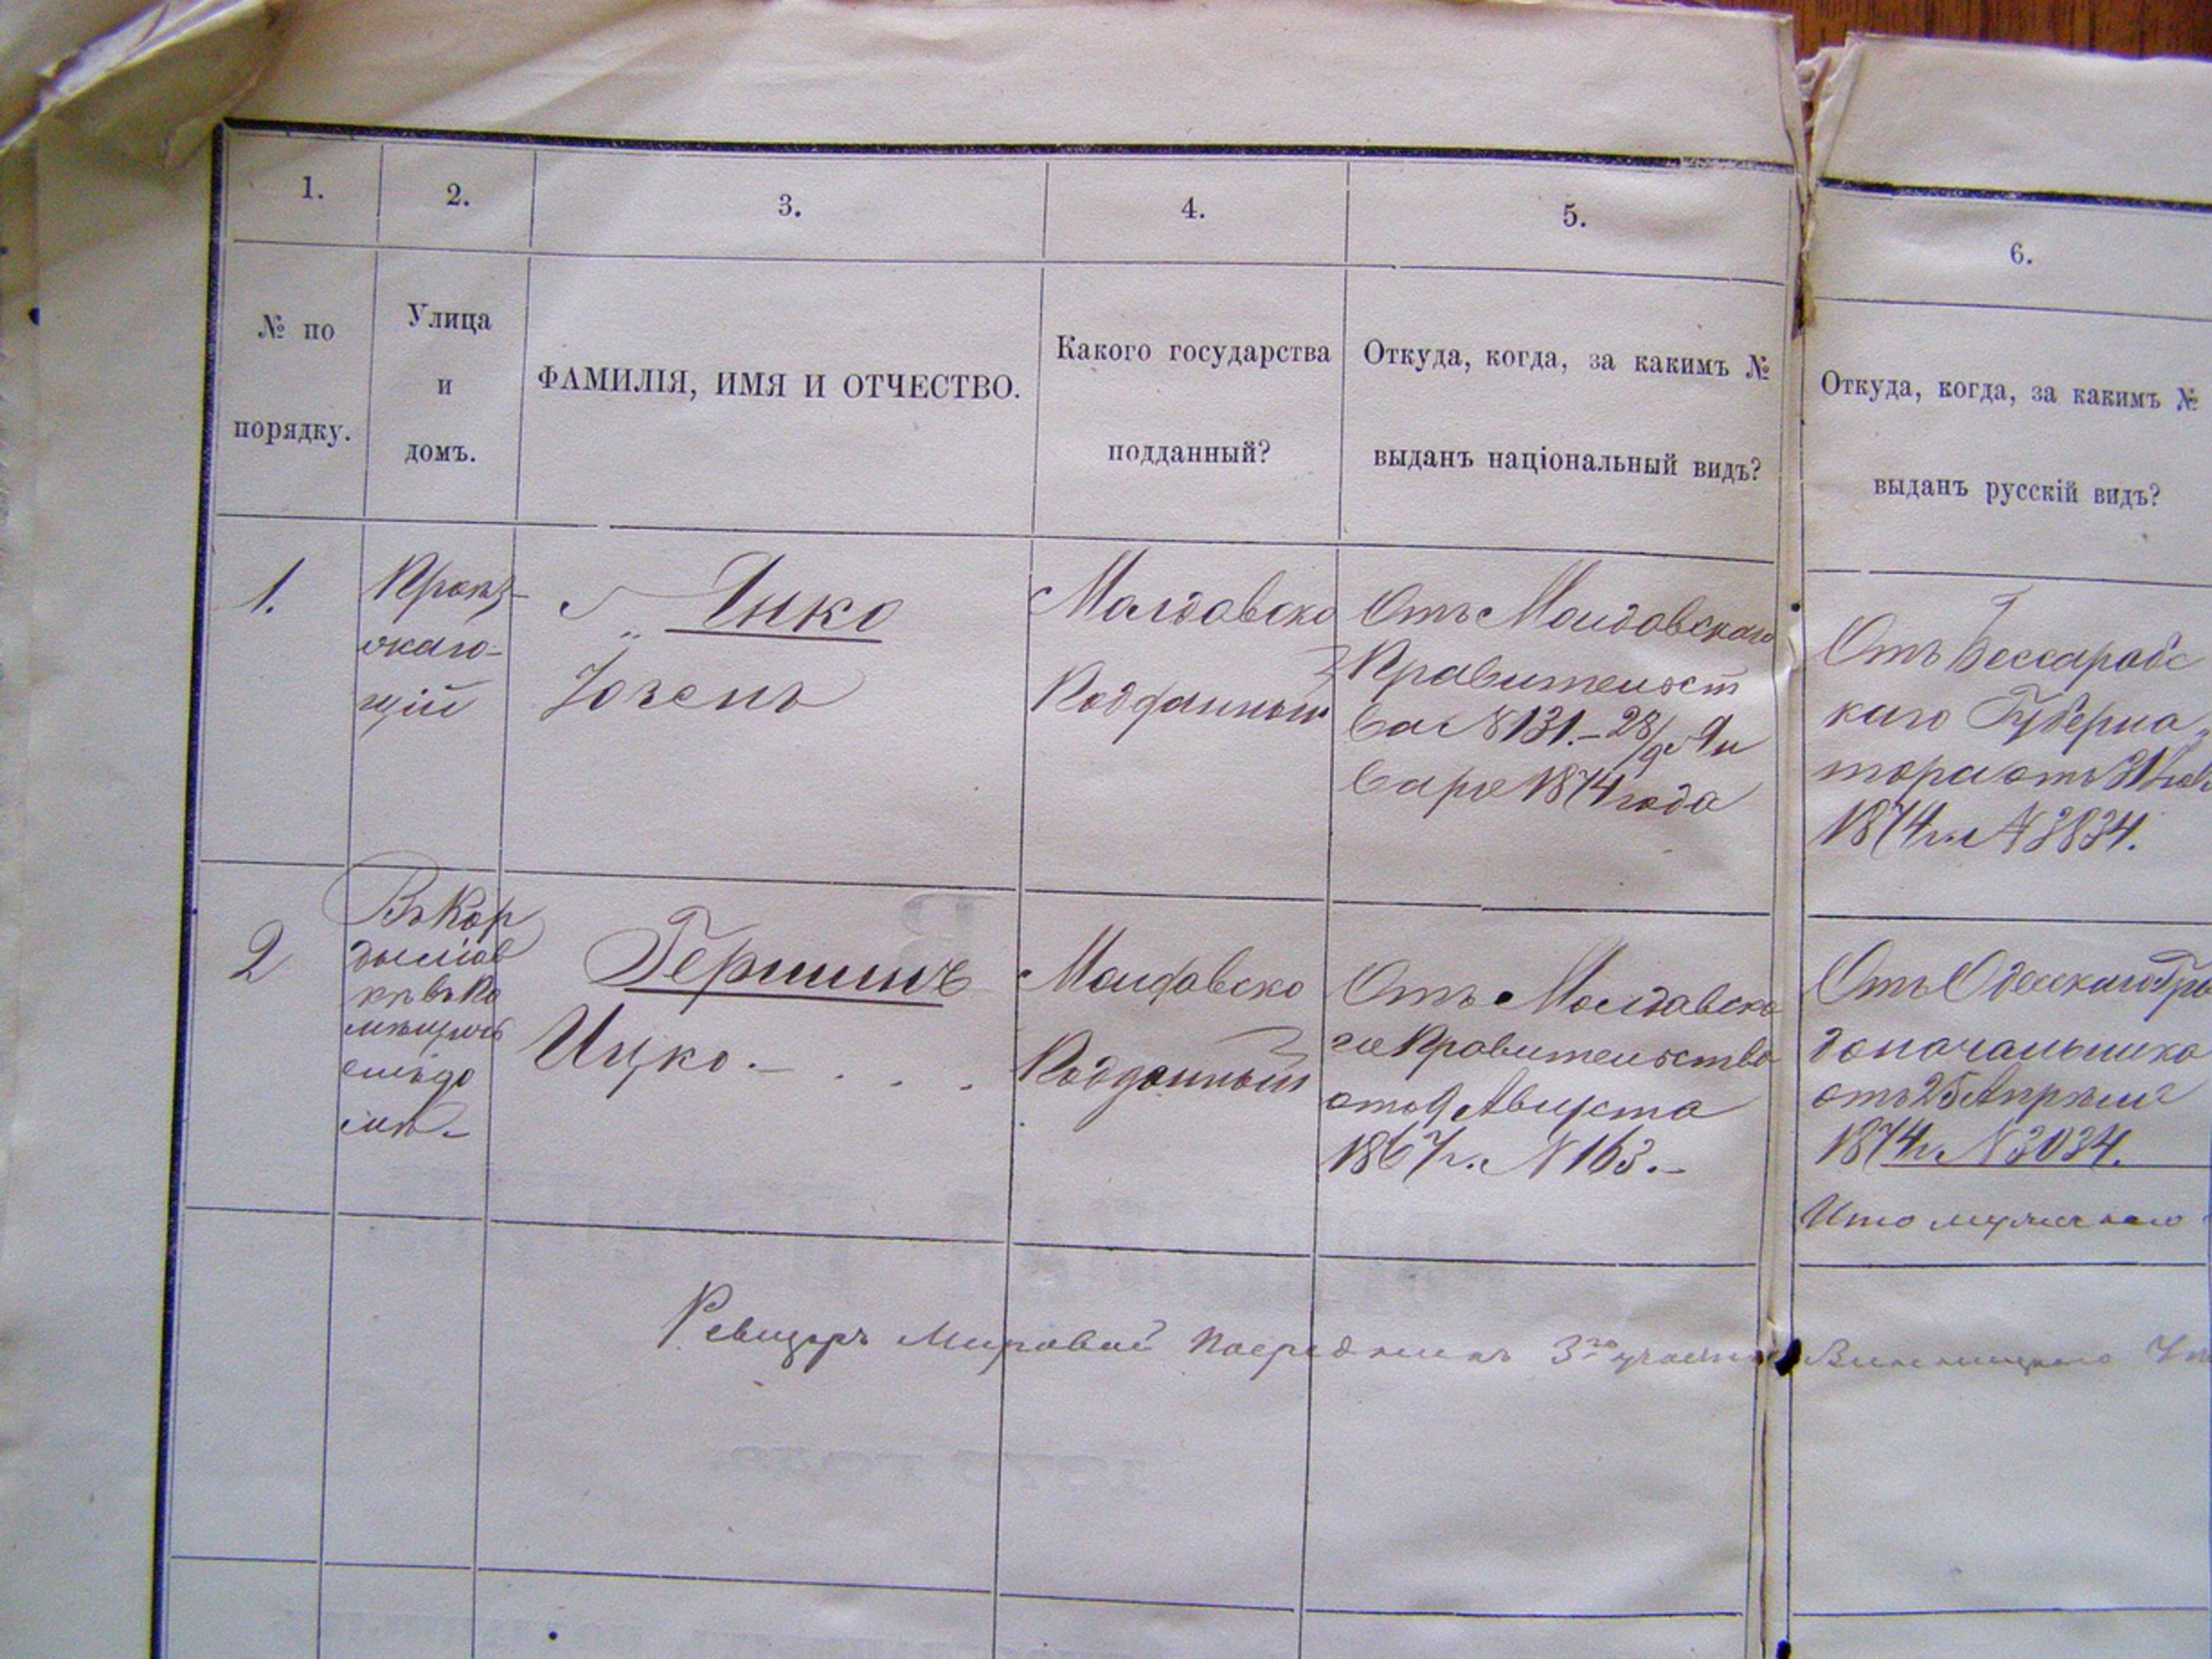 1.
2.
3.
4.
5.
6.
№ по
порядку.
Улица
и
домъ.
ФАМИЛІЯ, ИМЯ И ОТЧЕСТВО.
Какого государства
подданный?
Откуда, когда, за какимъ №
выданъ національный видъ?
Откуда, когда, за какимъ №
выданъ русскій видъ?
1.
Янко
Молдавско
Подданный
Отъ Молдавскаго
Правительст
ва № 131.– 28/9 Ян
варя 1874 года
Отъ Бессарабс
каго Губерна
тора отъ
1874 г. №
2
Гершинъ
Ицко.–
Молдавско
Подданный
Отъ Молдавска
го Правительства
отъ 9 Августа
1867 г. № 163.–
Отъ Одесскаго Гра
доначальника
отъ 25 Апрѣля
1874 г. № 3034.
Мировой Посредникъ 3го участка Винницкаго